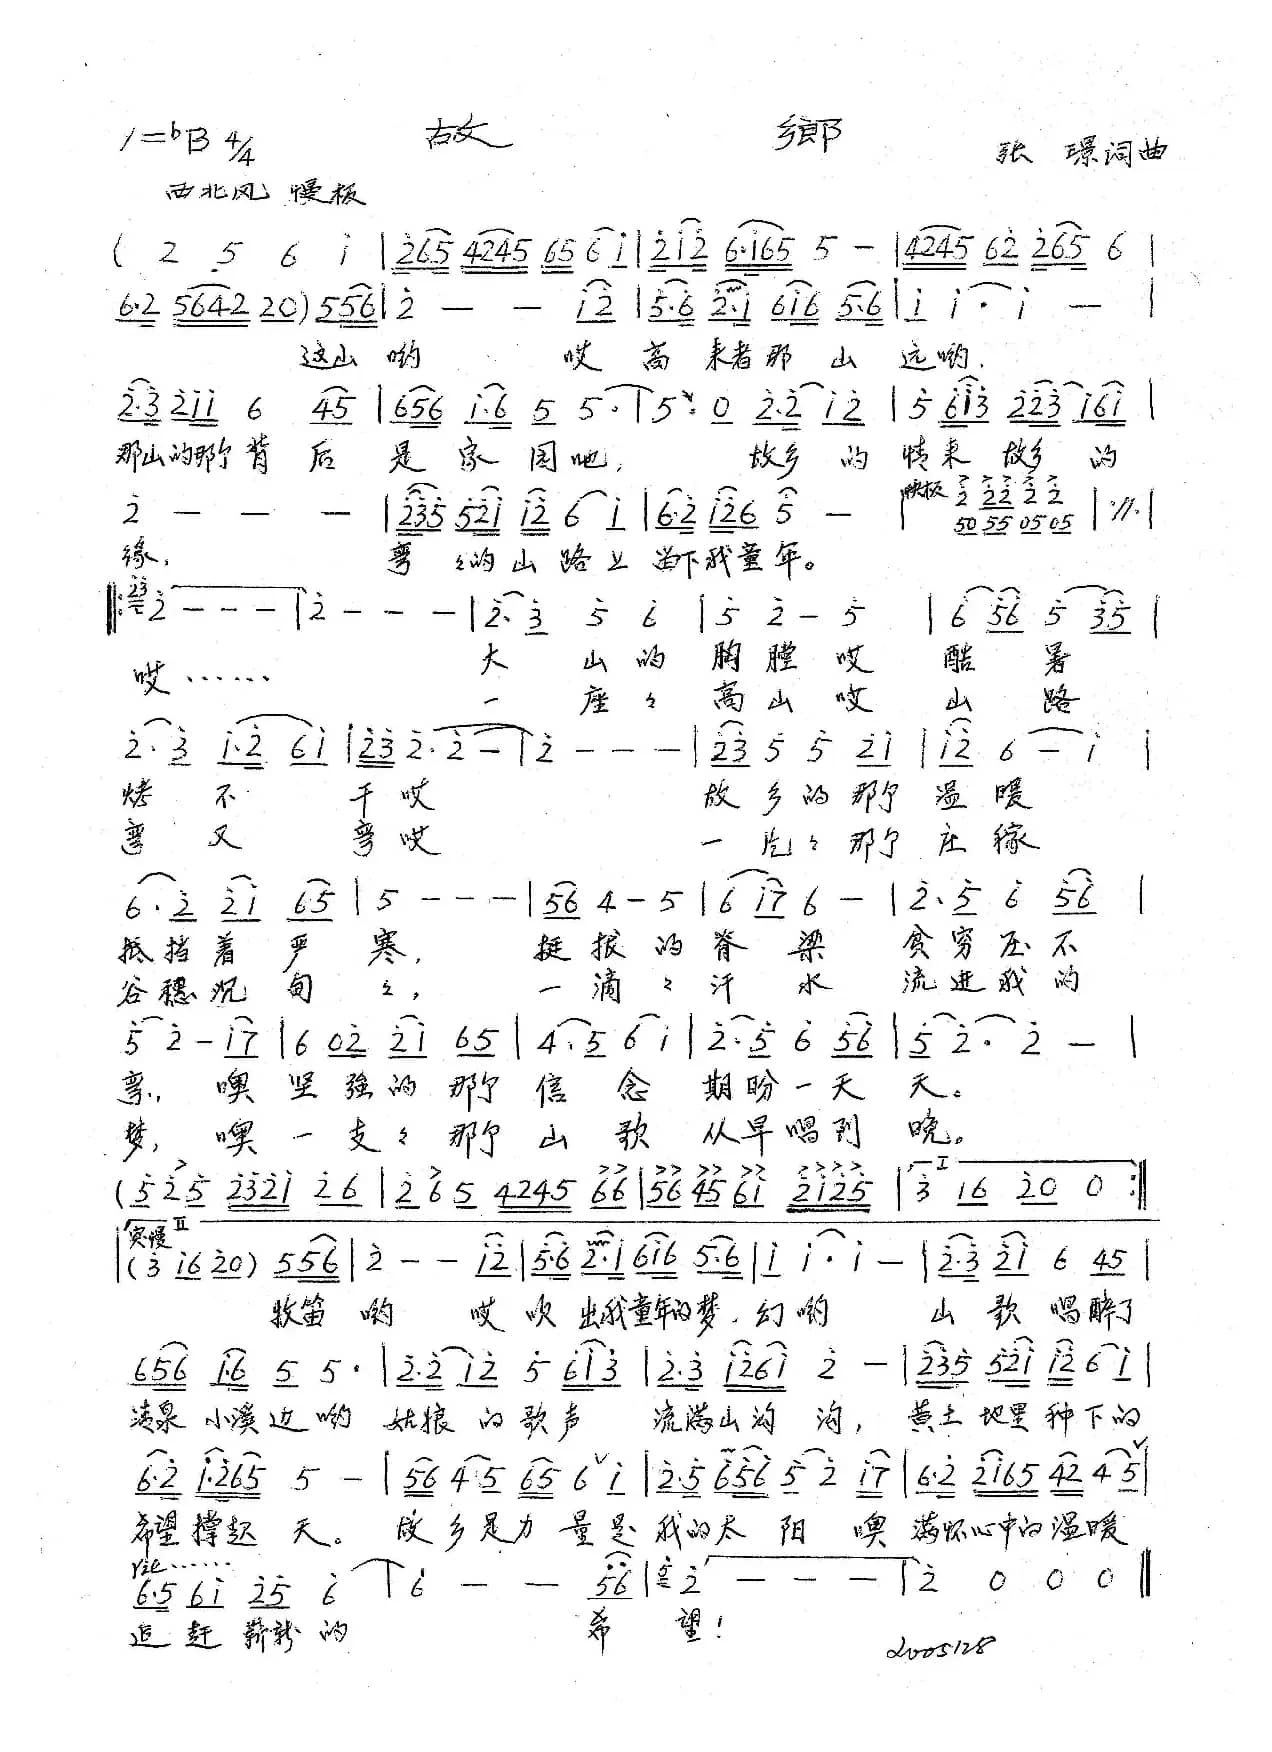 1=♭B 4/4 故鄉 张 璟词曲
西北风 慢板
( 2 5 6 i | 265 4245 65 6 i | 2i2 6·i65 5 – | 4245 62 265 6 |
6·2 5642 20) 556 | 2 – – i2 | 5·6 2·i 6i6 5·6 | i i · i – |
这山哟 哎高来者那山远哟.
2·3 2ii 6 45 | 656 i·6 5 5· | 5· 0 2·2 i2 | 5 6i3 223 i6i |
那山的那个背后是家园吔, 故乡的情来故乡的
2 – – – | 235 52i i2 6 i | 6·2 i26 5 – | 快板 2 22 2 2 50 55 05 05 | ://. |
缘, 弯々的山路上留下我童年。
||: 23 2 – – – | 2 – – – | 2·3 5 6 | 5 2 – 5 | 6 56 5 35 |
哎…… 大山的胸膛哎酷暑
一座々高山哎山路
2·3 i·2 6i | 23 2·2 – | 2 – – – | 23 5 5 2i | i2 6 – i |
烤不干哎 故乡的那个温暖
弯又弯哎 一片々那个庄稼
6·2 2i 65 | 5 – – – | 56 4 – 5 | 6 i7 6 – | 2·5 6 56 |
抵挡着严寒, 挺拔的脊梁贫穷压不
谷穗沉甸々, 一滴々汗水流进我的
5 2 – i7 | 6 02 2i 65 | 4·5 6 i | 2·5 6 56 | 5 2· 2 – |
弯, 噢坚强的那个信念期盼一天天。
梦, 噢一支々那个山歌从早唱到晚。
( 5 2 5 232i 26 | 2 6 5 4245 66 | 56 45 6i 2i25 | I 3 i6 20 0 :||
突慢 II (3 i6 20) 556 | 2 – – i2 | 5·6 2·i 6i6 5·6 | i i · i – | 2·3 2i 6 45 |
牧笛哟 哎吹出我童年的梦.幻哟 山歌唱醉了
656 i·6 5 5· | 2·2 i2 5 6i3 | 2·3 i26i 2 – | 235 52i i2 6 i |
清泉小溪边哟姑娘的歌声流满山沟沟, 黄土地里种下的
6·2 i·265 5 – | 56 4·5 65 6 i | 2·5 656 5 2 i7 | 6·2 2i65 42 4 5 |
希望撑起天。故乡是力量是我的太阳噢满怀心中的温暖
6·5 6i 25 6 | 6 – – 56 | 2 – – – | 2 0 0 0 ||
追赶崭新的 希望!
2005128